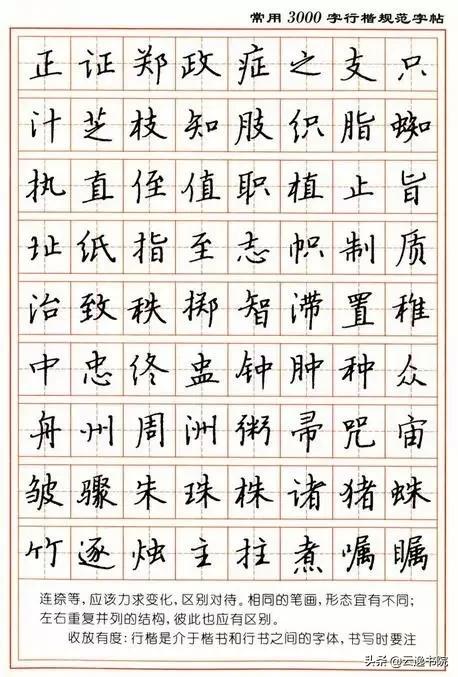 常用3000字行楷规范字帖
正证郑政症之支只
汁芝枝知肢织脂蜘
执直侄值职植止旨
址纸指至志帜制质
治致秩掷智滞置稚
中忠终盅钟肿种众
舟州周洲粥帚咒宙
皱骤朱珠株诸猪蛛
竹逐烛主拄煮嘱瞩
连捺等，应该力求变化，区别对待。相同的笔画，形态宜有不同；
左右重复并列的结构，彼此也应有区别。
收放有度：行楷是介于楷书和行书之间的字体，书写时要注
头条@云逸书院